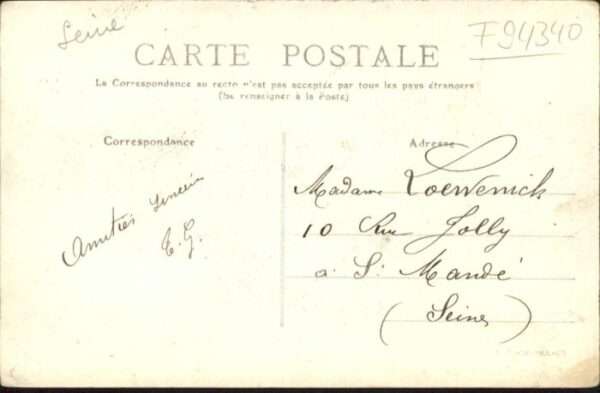 Seine
F94340
CARTE POSTALE
La Correspondance au recto n'est pas acceptée par tous les pays étrangers
(Se renseigner à la Poste)
Correspondance
Adresse
Amitiés
E. G.
Madame Loewenick
10 Rue Jolly
a St Mandé
(Seine)